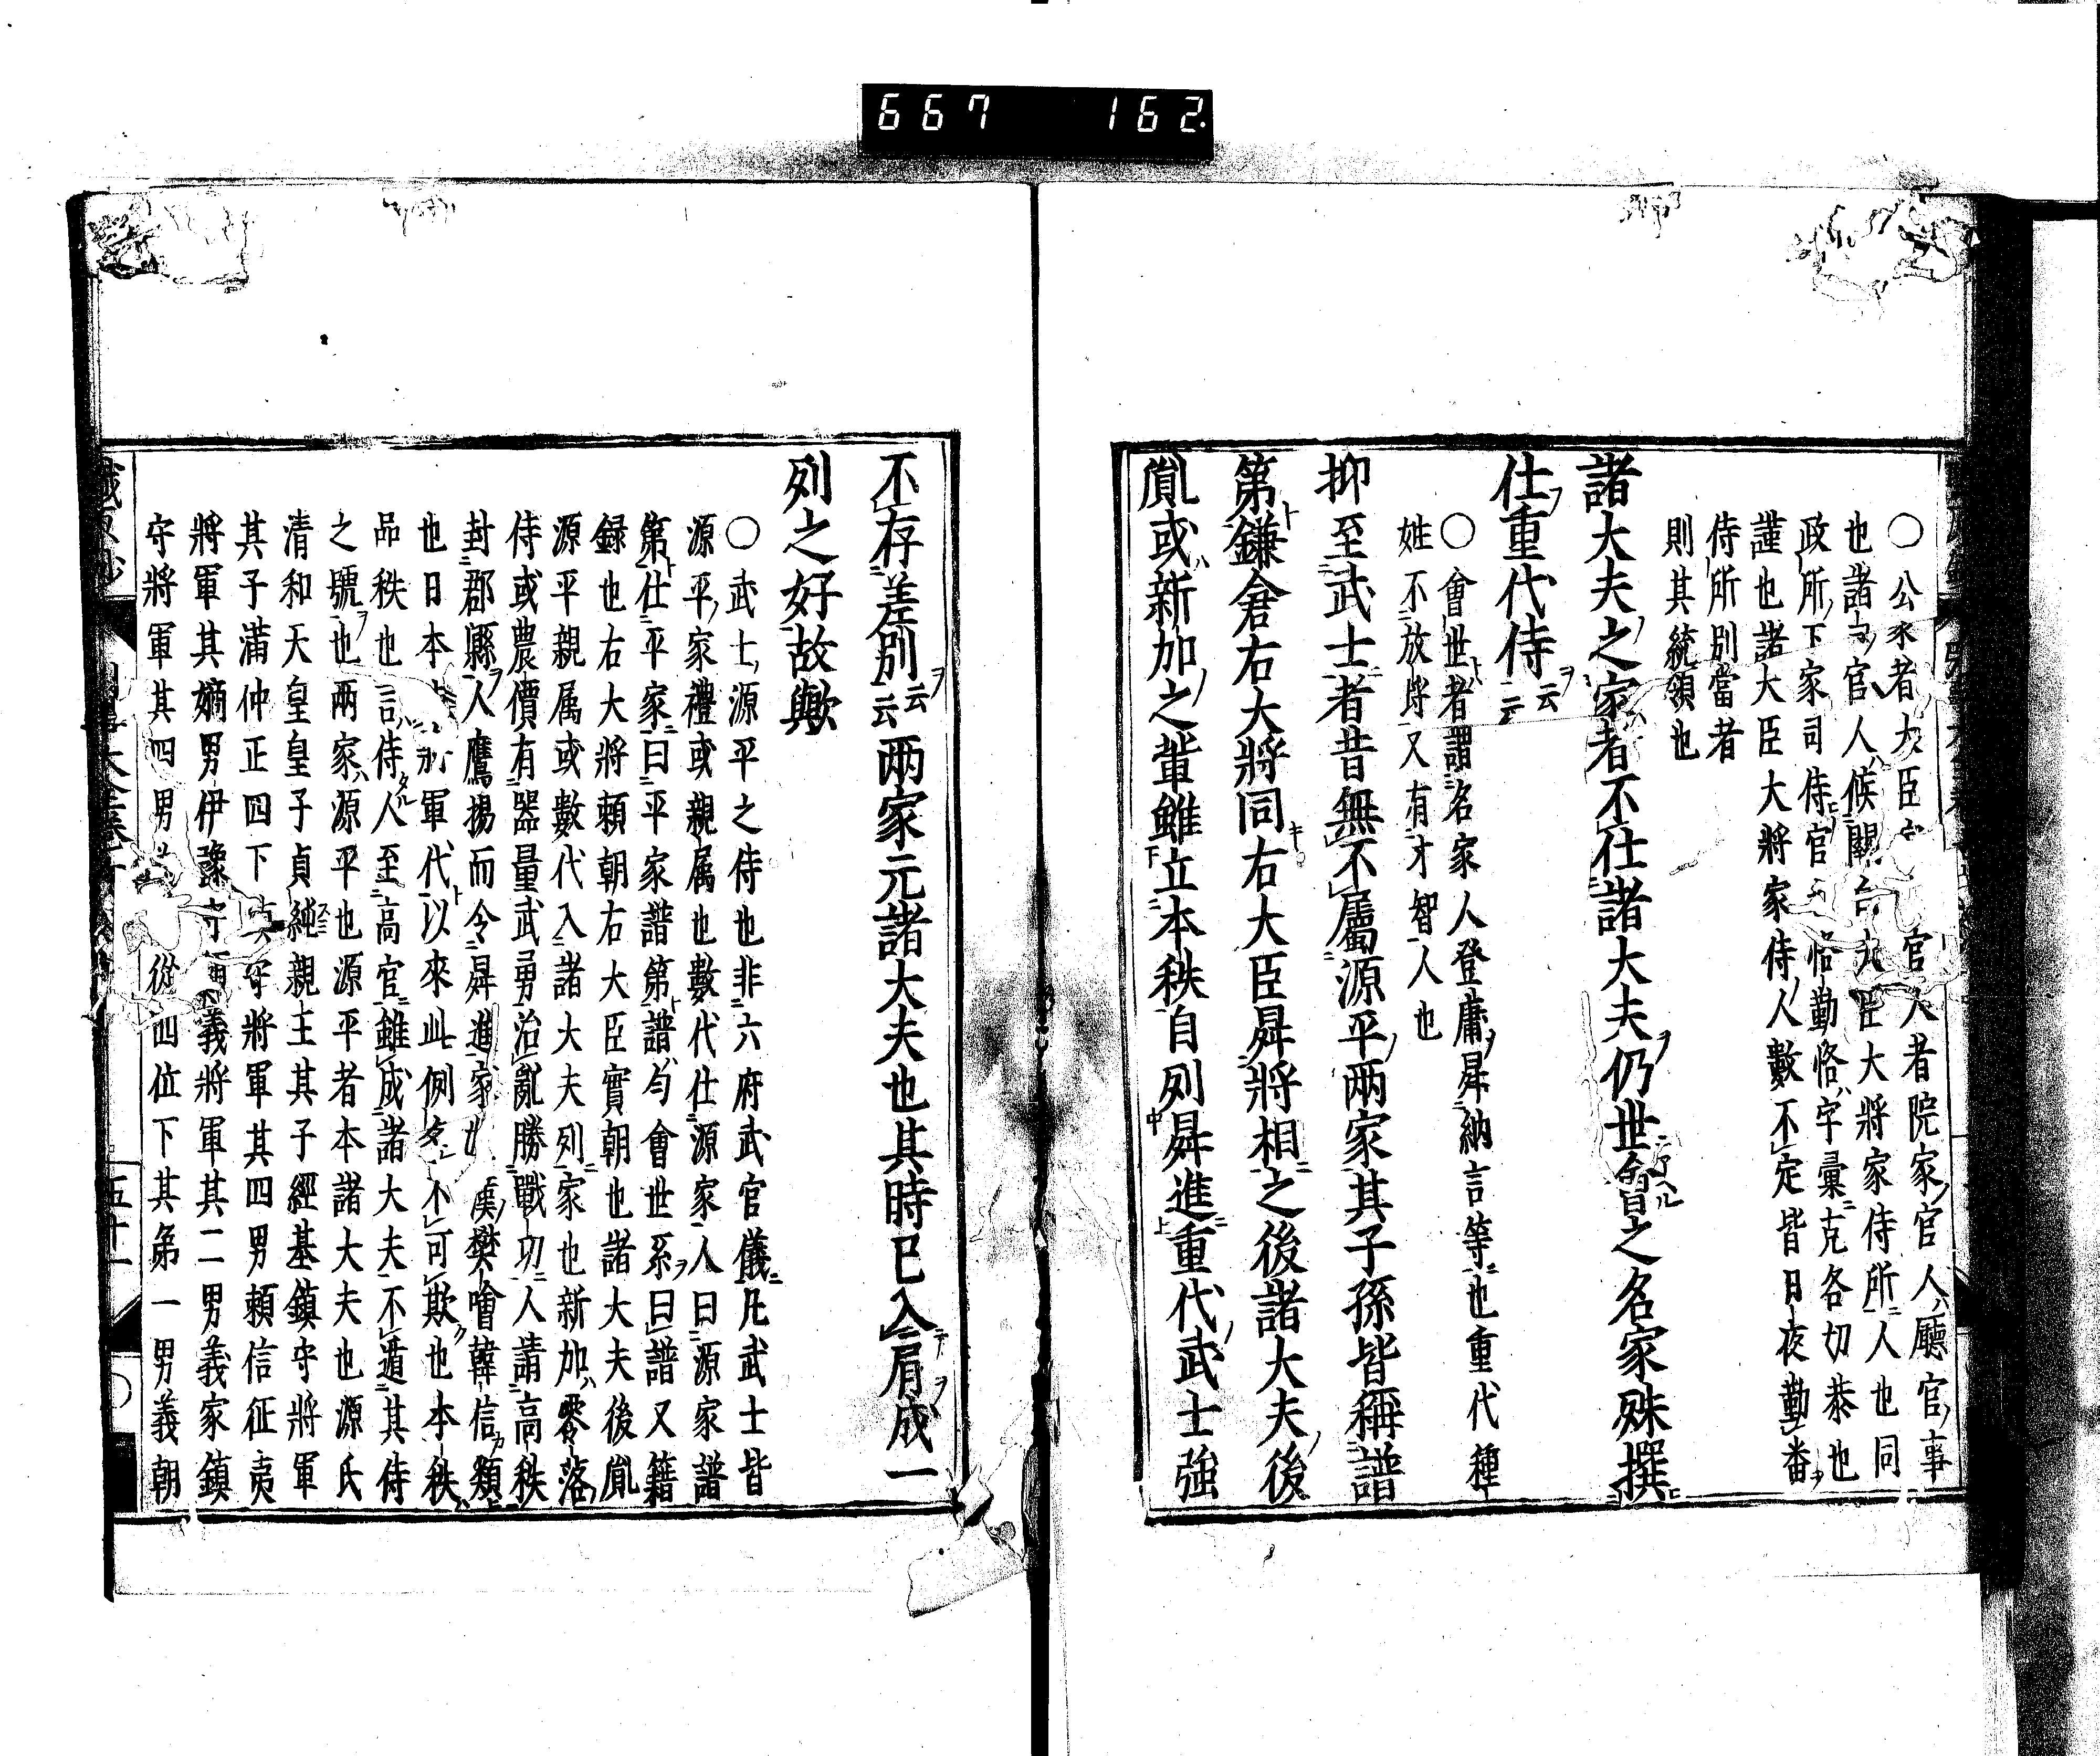 667 162
○公家者大臣官人者院家官人廳官事
也諸官人候關大臣大將家侍所人也同
政所下家司侍官恪勤恪字彙克各切恭也
謹也諸大臣大將家侍人數不定皆日夜勤番
侍所別當者
則其統領也
諸大夫之家者不仕諸大夫仍世會之名家殊撰
仕重代侍云云
○會世者謂名家人登庸昇納言等也重代種
姓不放埒又有才智人也
抑至武士者昔無不屬源平兩家其子孫皆稱譜
第鎌倉右大將同右大臣昇將相之後諸大夫後
胤或新加之輩雖立本秩自列昇進重代武士強
不存差別云云兩家元諸大夫也其時已入肩成一
列之好故歟
○武士源平之侍也非六府武官儀凡武士皆
源平家禮或親属也數代仕源家人曰源家譜
第仕平家曰平家譜第譜勻會世系曰譜又籍
録也右大將賴朝右大臣實朝也諸大夫後胤
源平親属或數代入諸大夫列家也新加零落
侍或農價有器量武勇治亂勝戰功人請高秩
封郡縣人鷹揚而令昇進家漢樊噲韓信類
也日本軍代以來此例不可欺也本秩
品秩也言侍人至高官雖成諸大夫不遁其侍
之號也兩家源平也源平者本諸大夫也源氏
清和天皇皇子貞純親王其子經基鎮守將軍
其子滿仲正四下守將軍其四男賴信征夷
將軍其嫡男伊豫守義將軍其二男義家鎮
守將軍其四男從四位下其第一男義朝
五十一